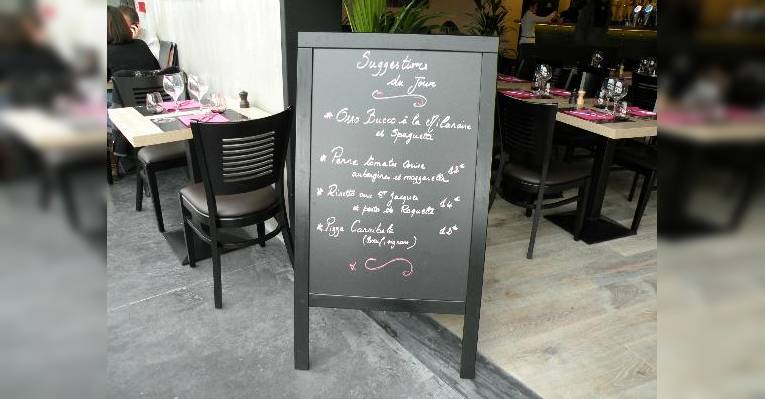 Suggestions
du Jour
* Osso Bucco à la Milanaise
et Spaguetti
* Penne tomates cerise
aubergines et mozzarella
* Risotto aux St Jacques
et pesto de Roquette 14€
* Pizza Cannibale
(Bœuf, oignons)